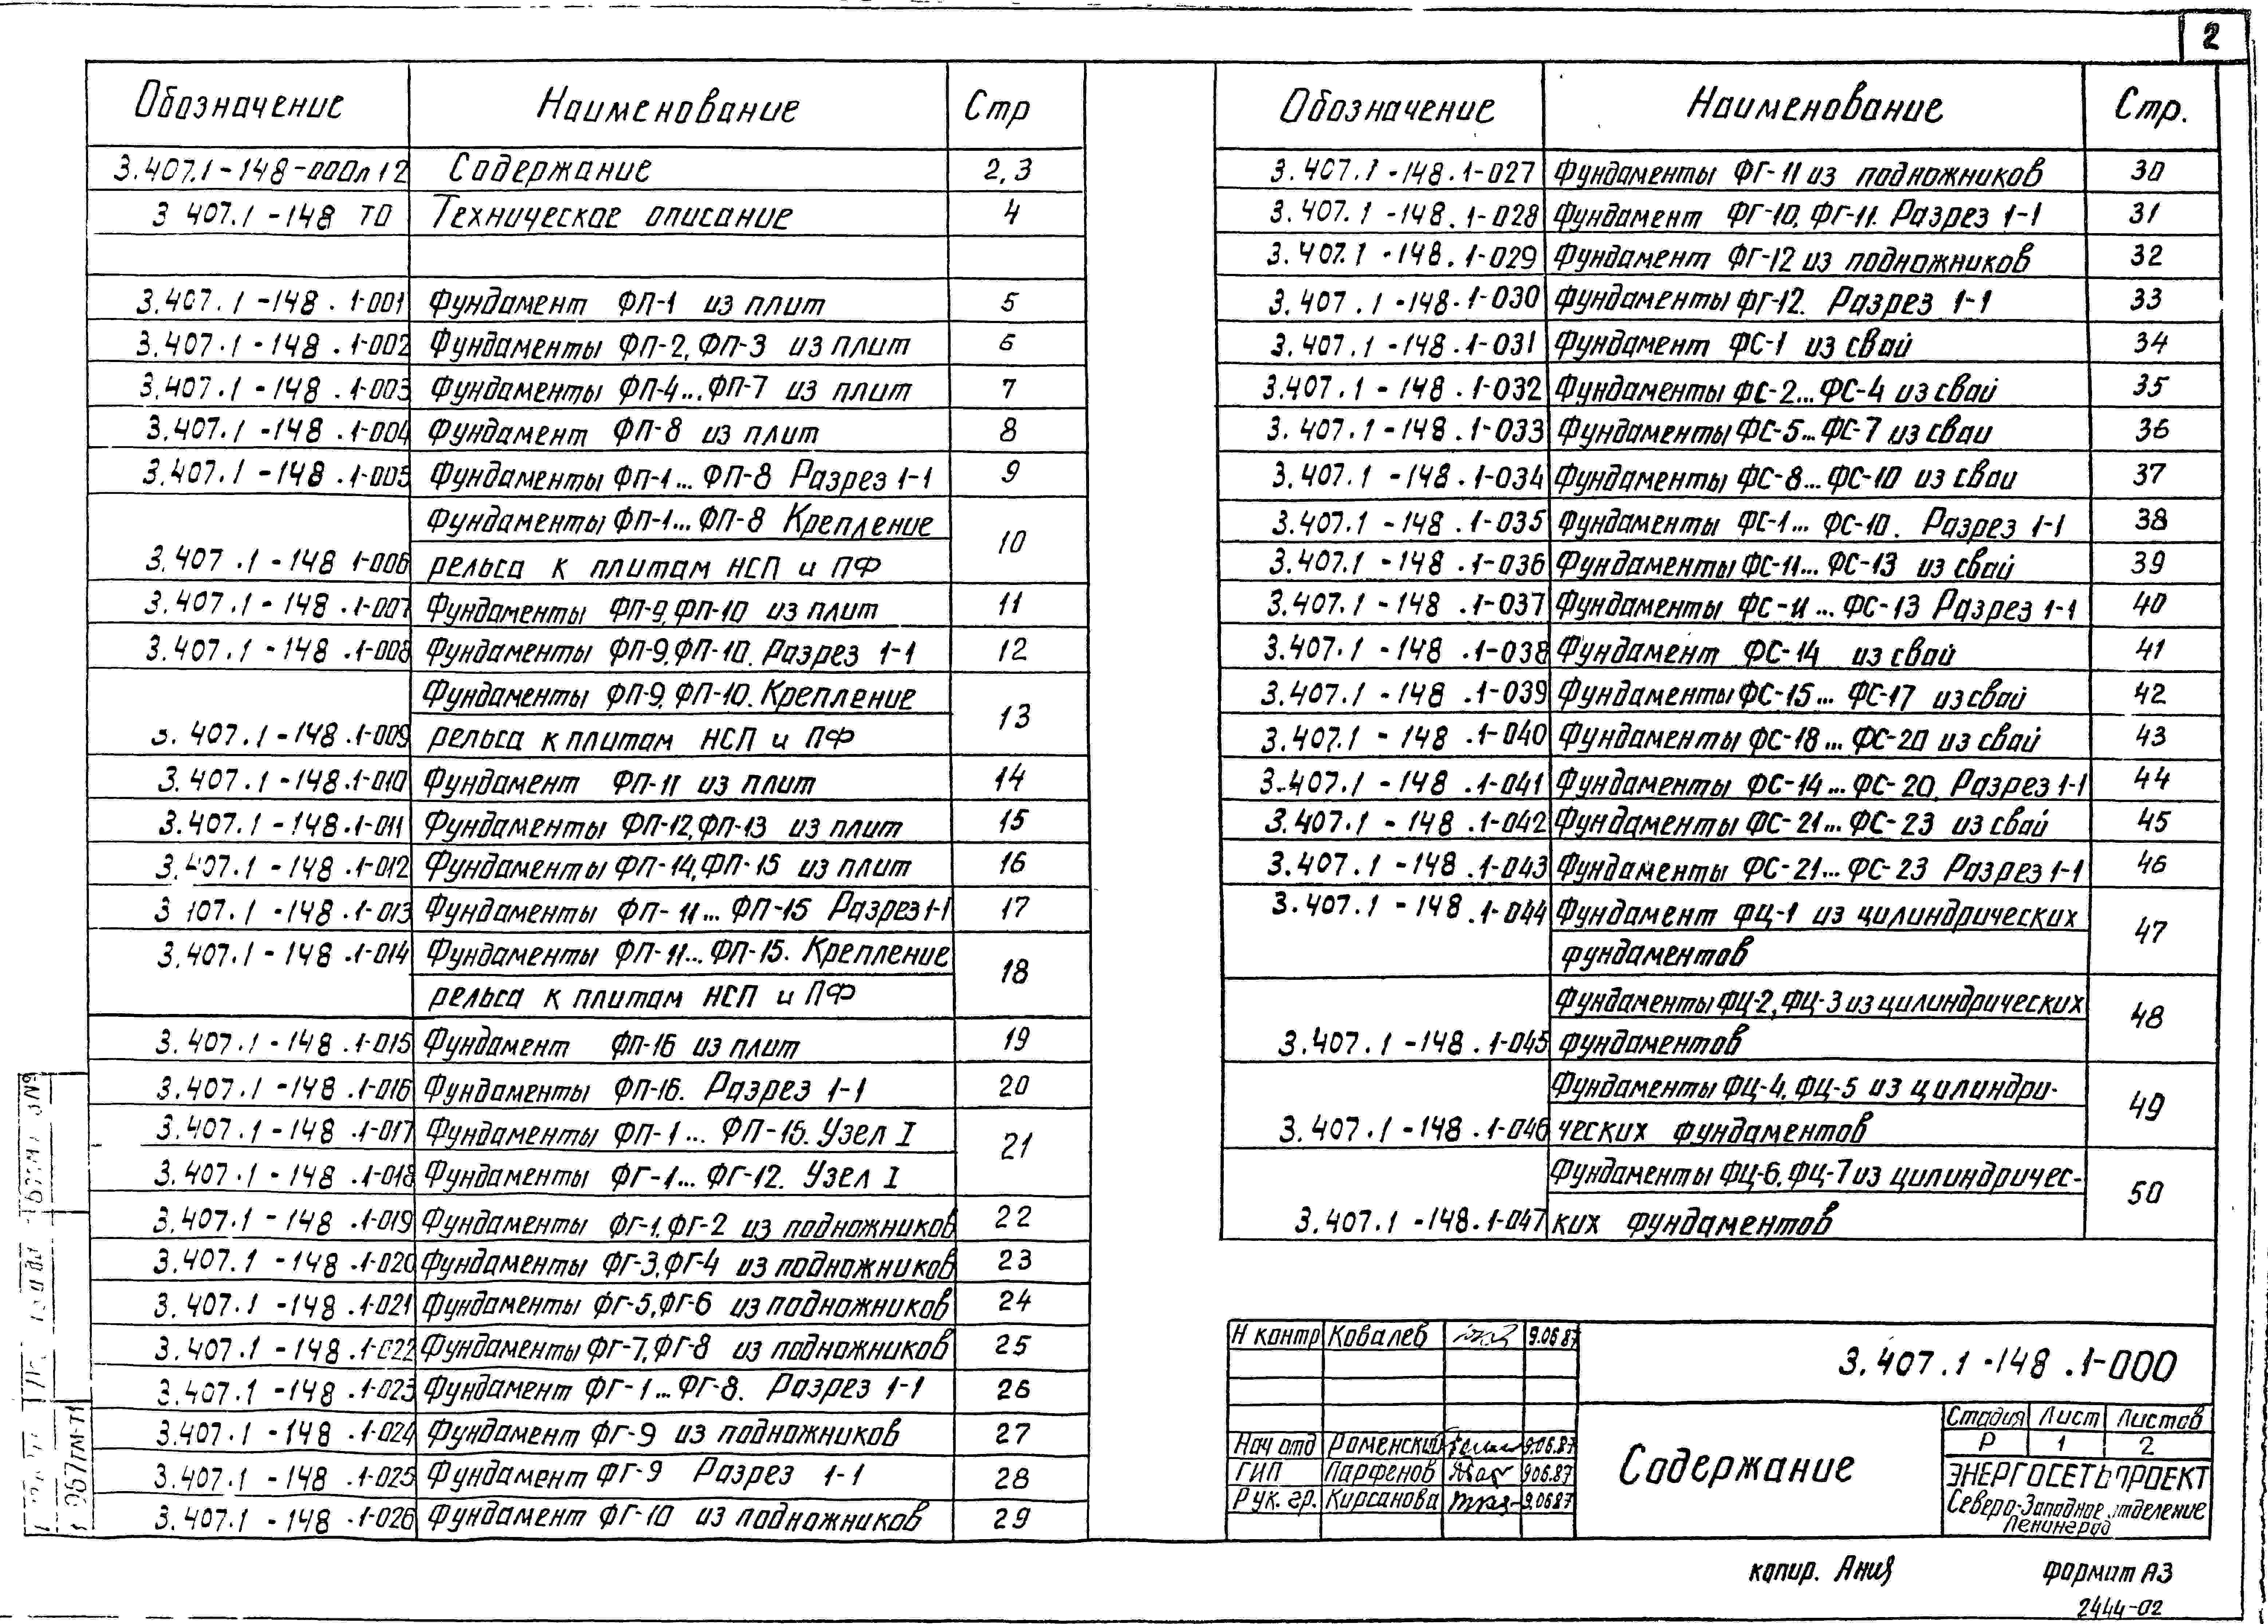 2
Обозначение Наименование Стр
3.407.1-148-000л 1 2 Содержание 2,3
3 407.1-148 ТО Техническое описание 4
3.407.1-148.1-001 Фундамент ФП-1 из плит 5
3.407.1-148.1-002 Фундаменты ФП-2, ФП-3 из плит 6
3.407.1-148.1-003 Фундаменты ФП-4...ФП-7 из плит 7
3.407.1-148.1-004 Фундамент ФП-8 из плит 8
3.407.1-148.1-005 Фундаменты ФП-1...ФП-8 Разрез 1-1 9
Фундаменты ФП-1...ФП-8 Крепление
3.407.1-148 1-006 рельса к плитам НСП и ПФ 10
3.407.1-148.1-007 Фундаменты ФП-9, ФП-10 из плит 11
3.407.1-148.1-008 Фундаменты ФП-9, ФП-10. Разрез 1-1 12
Фундаменты ФП-9, ФП-10. Крепление
3.407.1-148.1-009 рельса к плитам НСП и ПФ 13
3.407.1-148.1-010 Фундамент ФП-11 из плит 14
3.407.1-148.1-011 Фундаменты ФП-12, ФП-13 из плит 15
3.407.1-148.1-012 Фундаменты ФП-14, ФП-15 из плит 16
3 107.1-148.1-013 Фундаменты ФП-11...ФП-15 Разрез 1-1 17
3.407.1-148.1-014 Фундаменты ФП-11...ФП-15. Крепление
рельса к плитам НСП и ПФ 18
3.407.1-148.1-015 Фундамент ФП-16 из плит 19
3.407.1-148.1-016 Фундаменты ФП-16. Разрез 1-1 20
3.407.1-148.1-017 Фундаменты ФП-1...ФП-16. Узел I 21
3.407.1-148.1-018 Фундаменты ФГ-1...ФГ-12. Узел I
3.407.1-148.1-019 Фундаменты ФГ-1, ФГ-2 из подножников 22
3.407.1-148.1-020 Фундаменты ФГ-3, ФГ-4 из подножников 23
3.407.1-148.1-021 Фундаменты ФГ-5, ФГ-6 из подножников 24
3.407.1-148.1-022 Фундаменты ФГ-7, ФГ-8 из подножников 25
3.407.1-148.1-023 Фундамент ФГ-1...ФГ-8. Разрез 1-1 26
3.407.1-148.1-024 Фундамент ФГ-9 из подножников 27
3.407.1-148.1-025 Фундамент ФГ-9 Разрез 1-1 28
3.407.1-148.1-026 Фундамент ФГ-10 из подножников 29
Обозначение Наименование Стр.
3.407.1-148.1-027 Фундаменты ФГ-11 из подножников 30
3.407.1-148.1-028 Фундамент ФГ-10, ФГ-11. Разрез 1-1 31
3.407.1-148.1-029 Фундамент ФГ-12 из подножников 32
3.407.1-148.1-030 Фундаменты ФГ-12. Разрез 1-1 33
3.407.1-148.1-031 Фундамент ФС-1 из свай 34
3.407.1-148.1-032 Фундаменты ФС-2...ФС-4 из свай 35
3.407.1-148.1-033 Фундаменты ФС-5...ФС-7 из сваи 36
3.407.1-148.1-034 Фундаменты ФС-8...ФС-10 из сваи 37
3.407.1-148.1-035 Фундаменты ФС-1...ФС-10. Разрез 1-1 38
3.407.1-148.1-036 Фундаменты ФС-11...ФС-13 из свай 39
3.407.1-148.1-037 Фундаменты ФС-11...ФС-13 Разрез 1-1 40
3.407.1-148.1-038 Фундамент ФС-14 из свай 41
3.407.1-148.1-039 Фундаменты ФС-15...ФС-17 из свай 42
3.407.1-148.1-040 Фундаменты ФС-18...ФС-20 из свай 43
3.407.1-148.1-041 Фундаменты ФС-14...ФС-20. Разрез 1-1 44
3.407.1-148.1-042 Фундаменты ФС-21...ФС-23 из свай 45
3.407.1-148.1-043 Фундаменты ФС-21...ФС-23 Разрез 1-1 46
3.407.1-148.1-044 Фундамент ФЦ-1 из цилиндрических
фундаментов 47
Фундаменты ФЦ-2, ФЦ-3 из цилиндрических
3.407.1-148.1-045 фундаментов 48
Фундаменты ФЦ-4, ФЦ-5 из цилиндри-
3.407.1-148.1-046 ческих фундаментов 49
Фундаменты ФЦ-6, ФЦ-7 из цилиндричес-
3.407.1-148.1-047 ких фундаментов 50
Н контр Ковалев 9.06.87
3.407.1-148.1-000
Стадия Лист Листов
Р 1 2
Нач отд Роменский 9.06.87
ГИП Парфенов 9.06.87
Рук. гр. Кирсанова 9.06.87
Содержание
ЭНЕРГОСЕТЬПРОЕКТ
Северо-Западное отделение
Ленинград
копир. Аниз
формат А3
2444-02